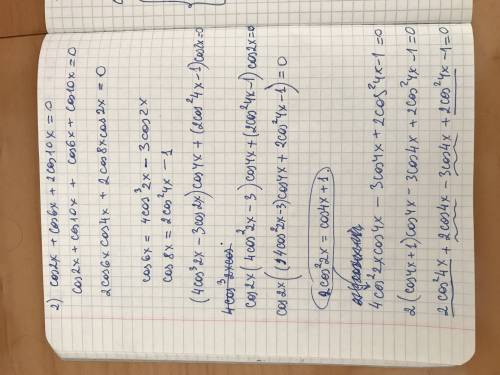 2) cos2x + cos6x + 2cos10x = 0
cos2x + cos10x + cos6x + cos10x = 0
2cos6x cos4x + 2cos8x cos2x = 0
cos6x = 4cos³2x - 3cos2x
cos8x = 2cos²4x - 1
(4cos³2x - 3cos2x) cos4x + (2cos²4x - 1) cos2x = 0
4cos³2x cos
cos2x (4cos²2x - 3) cos4x + (2cos²4x - 1) cos2x = 0
cos2x ((4cos²2x - 3) cos4x + 2cos²4x - 1) = 0
2cos²2x = cos4x + 1
4cos²2x cos4x - 3cos4x + 2cos²4x - 1 = 0
2(cos4x + 1) cos4x - 3cos4x + 2cos²4x - 1 = 0
2cos²4x + 2cos4x - 3cos4x + 2cos²4x - 1 = 0